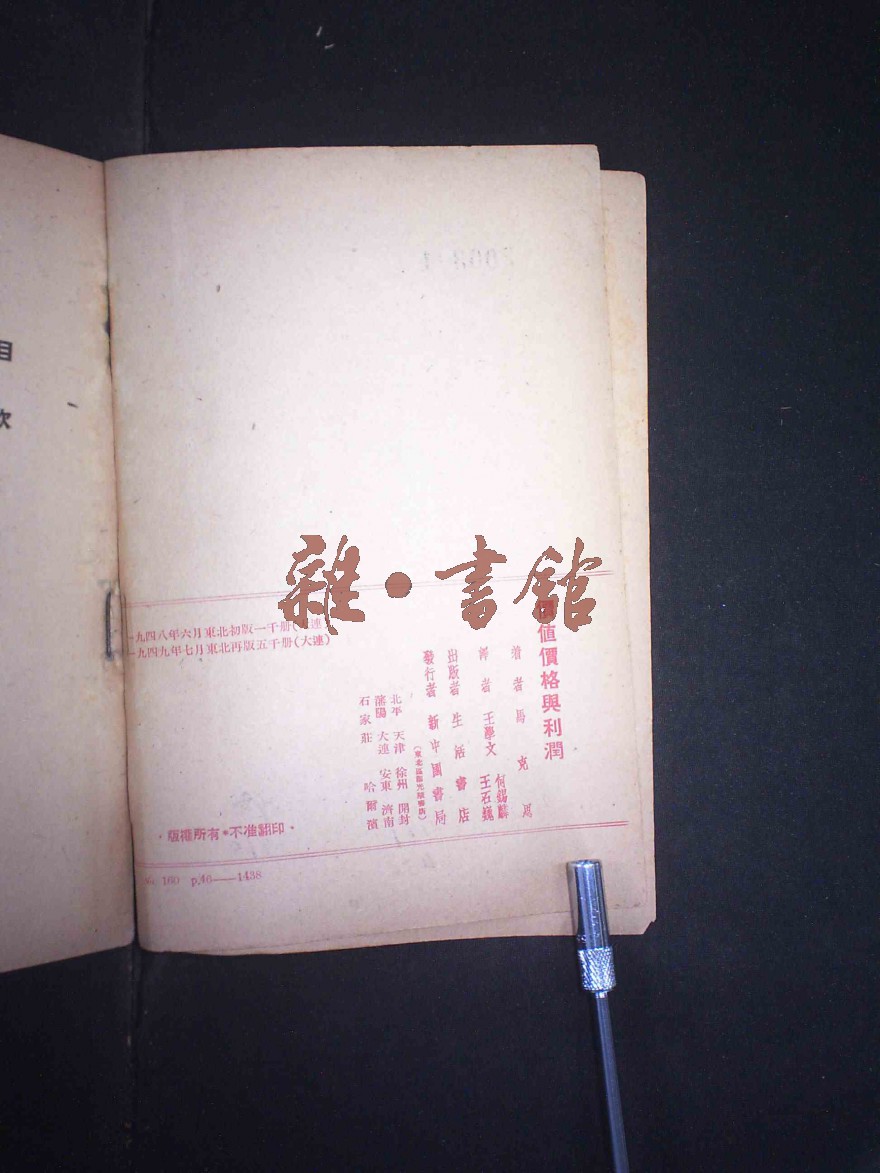 雜·書館
價值價格與利潤
著者 馬克思
譯者 王學文 何錫麟 王石巍
出版者 生活書店
發行者 新中國書局
北平 天津 徐州 開封
瀋陽 大連 安東 濟南
石家莊 哈爾濱
一九四八年六月東北初版一千册(大連)
一九四九年七月東北再版五千册(大連)
·版權所有·不准翻印·
160 p.46——1438
目
次